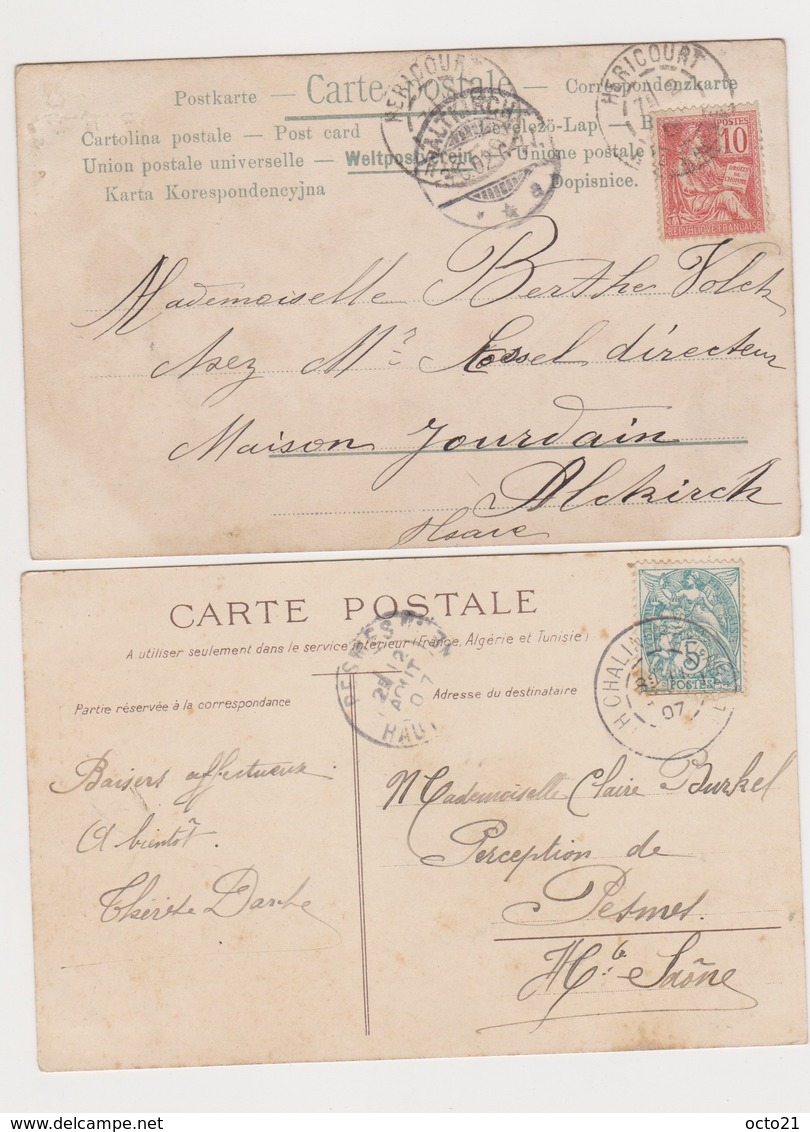 HERICOURT
HERICOURT
Postkarte — Carte postale — Correspondenzkarte
Cartolina postale — Post card Levelező-Lap —
Union postale universelle — Weltpostverein — Unione postale
Karta Korespondencyjna Dopisnice.
ALTKIRCH
10
POSTES
DROITS DE L'HOMME
REPVBLIQVE FRANÇAISE
Mademoiselle Berthe Volck
chez Mr directeur
Maison Jourdain
Altkirch
Alsace
CARTE POSTALE
A utiliser seulement dans le service intérieur (France, Algérie et Tunisie)
PESMES
12
AOUT
07
HAUTE
5c
POSTES
07
Partie réservée à la correspondance
Adresse du destinataire
Baisers affectueux.
A bientôt.
Thérèse Darche
Mademoiselle Claire Burkel
Perception de
Pesmes.
Hte Saône
octo21